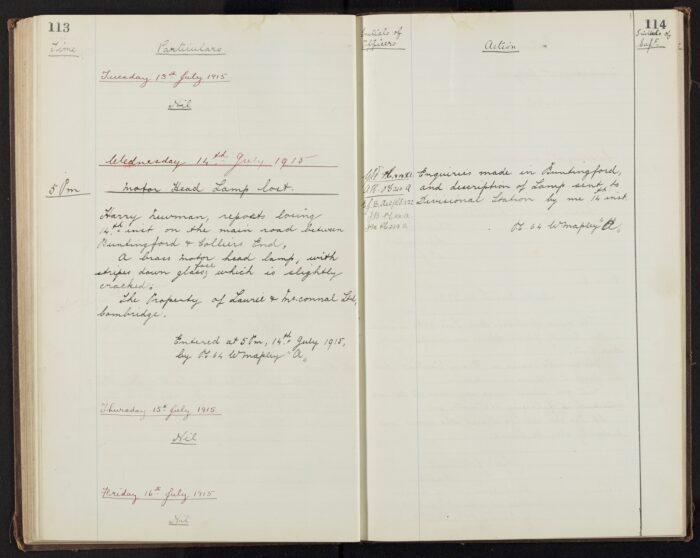 113
Time
Particulars
Tuesday 13th July 1915
Nil
Wednesday 14th July 1915
5 Pm
Motor Head Lamp lost.
Harry Newman, reports losing
14th inst on the main road between
Buntingford & Colliers End,
A brass motor head lamp, with
stripes down glass, face which is slightly
cracked.
The Property of Laurie & McConnal Ltd,
Cambridge.
Entered at 5 Pm, 14th July 1915,
by Pc 64 W Mapley "A"
Thursday 15th July 1915
Nil
Friday 16th July 1915
Nil
114
Initials of
Officers
Action
Initials of
Supt
Enquiries made in Buntingford,
and description of Lamp sent to
Divisional Station by me 14th inst
Pc 64 W Mapley "A"